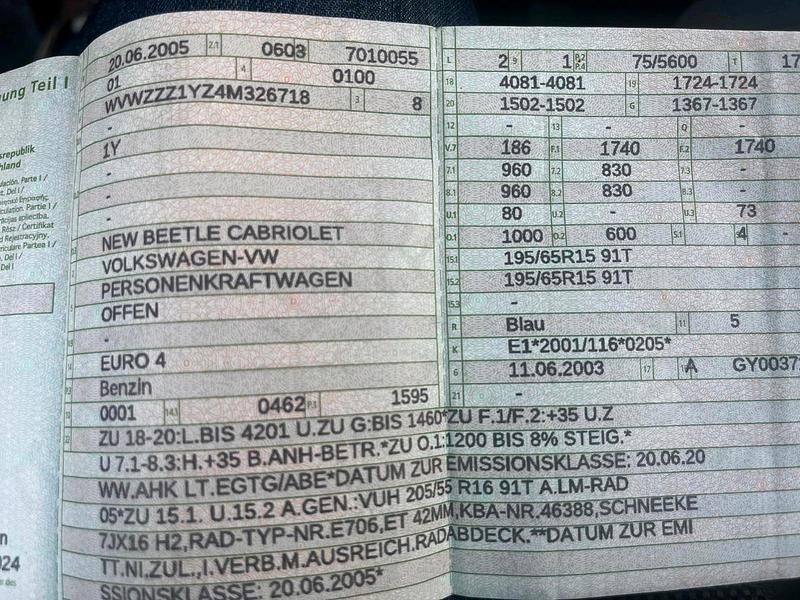 ung Teil I
srepublik
hland
20.06.2005 2.1 0603 7010055
01 4 0100
WVWZZZ1YZ4M326718 3 8
-
1Y
-
-
-
NEW BEETLE CABRIOLET
VOLKSWAGEN-VW
PERSONENKRAFTWAGEN
OFFEN
-
EURO 4
Benzin
0001 14.1 0462 P.1 1595
L 2 9 1 P.2 P.4 75/5600 T 17
18 4081-4081 19 1724-1724
20 1502-1502 G 1367-1367
12 - 13 - Q -
V.7 186 F.1 1740 F.2 1740
7.1 960 7.2 830 7.3 -
8.1 960 8.2 830 8.3 -
U.1 80 U.2 - U.3 73
O.1 1000 O.2 600 S.1 4 -
15.1 195/65R15 91T
15.2 195/65R15 91T
15.3 -
R Blau 11 5
K E1*2001/116*0205*
6 11.06.2003 17 A GY0037
21 -
ZU 18-20:L.BIS 4201 U.ZU G:BIS 1460*ZU F.1/F.2:+35 U.Z
U 7.1-8.3:H.+35 B.ANH-BETR.*ZU O.1:1200 BIS 8% STEIG.*
WW.AHK LT.EGTG/ABE*DATUM ZUR EMISSIONSKLASSE: 20.06.20
05*ZU 15.1. U.15.2 A.GEN.:VUH 205/55 R16 91T A.LM-RAD
7JX16 H2,RAD-TYP-NR.E706,ET 42MM,KBA-NR.46388,SCHNEEKE
TT.NI.ZUL.,I.VERB.M.AUSREICH.RADABDECK.**DATUM ZUR EMI
SSIONSKLASSE: 20.06.2005*
n
024